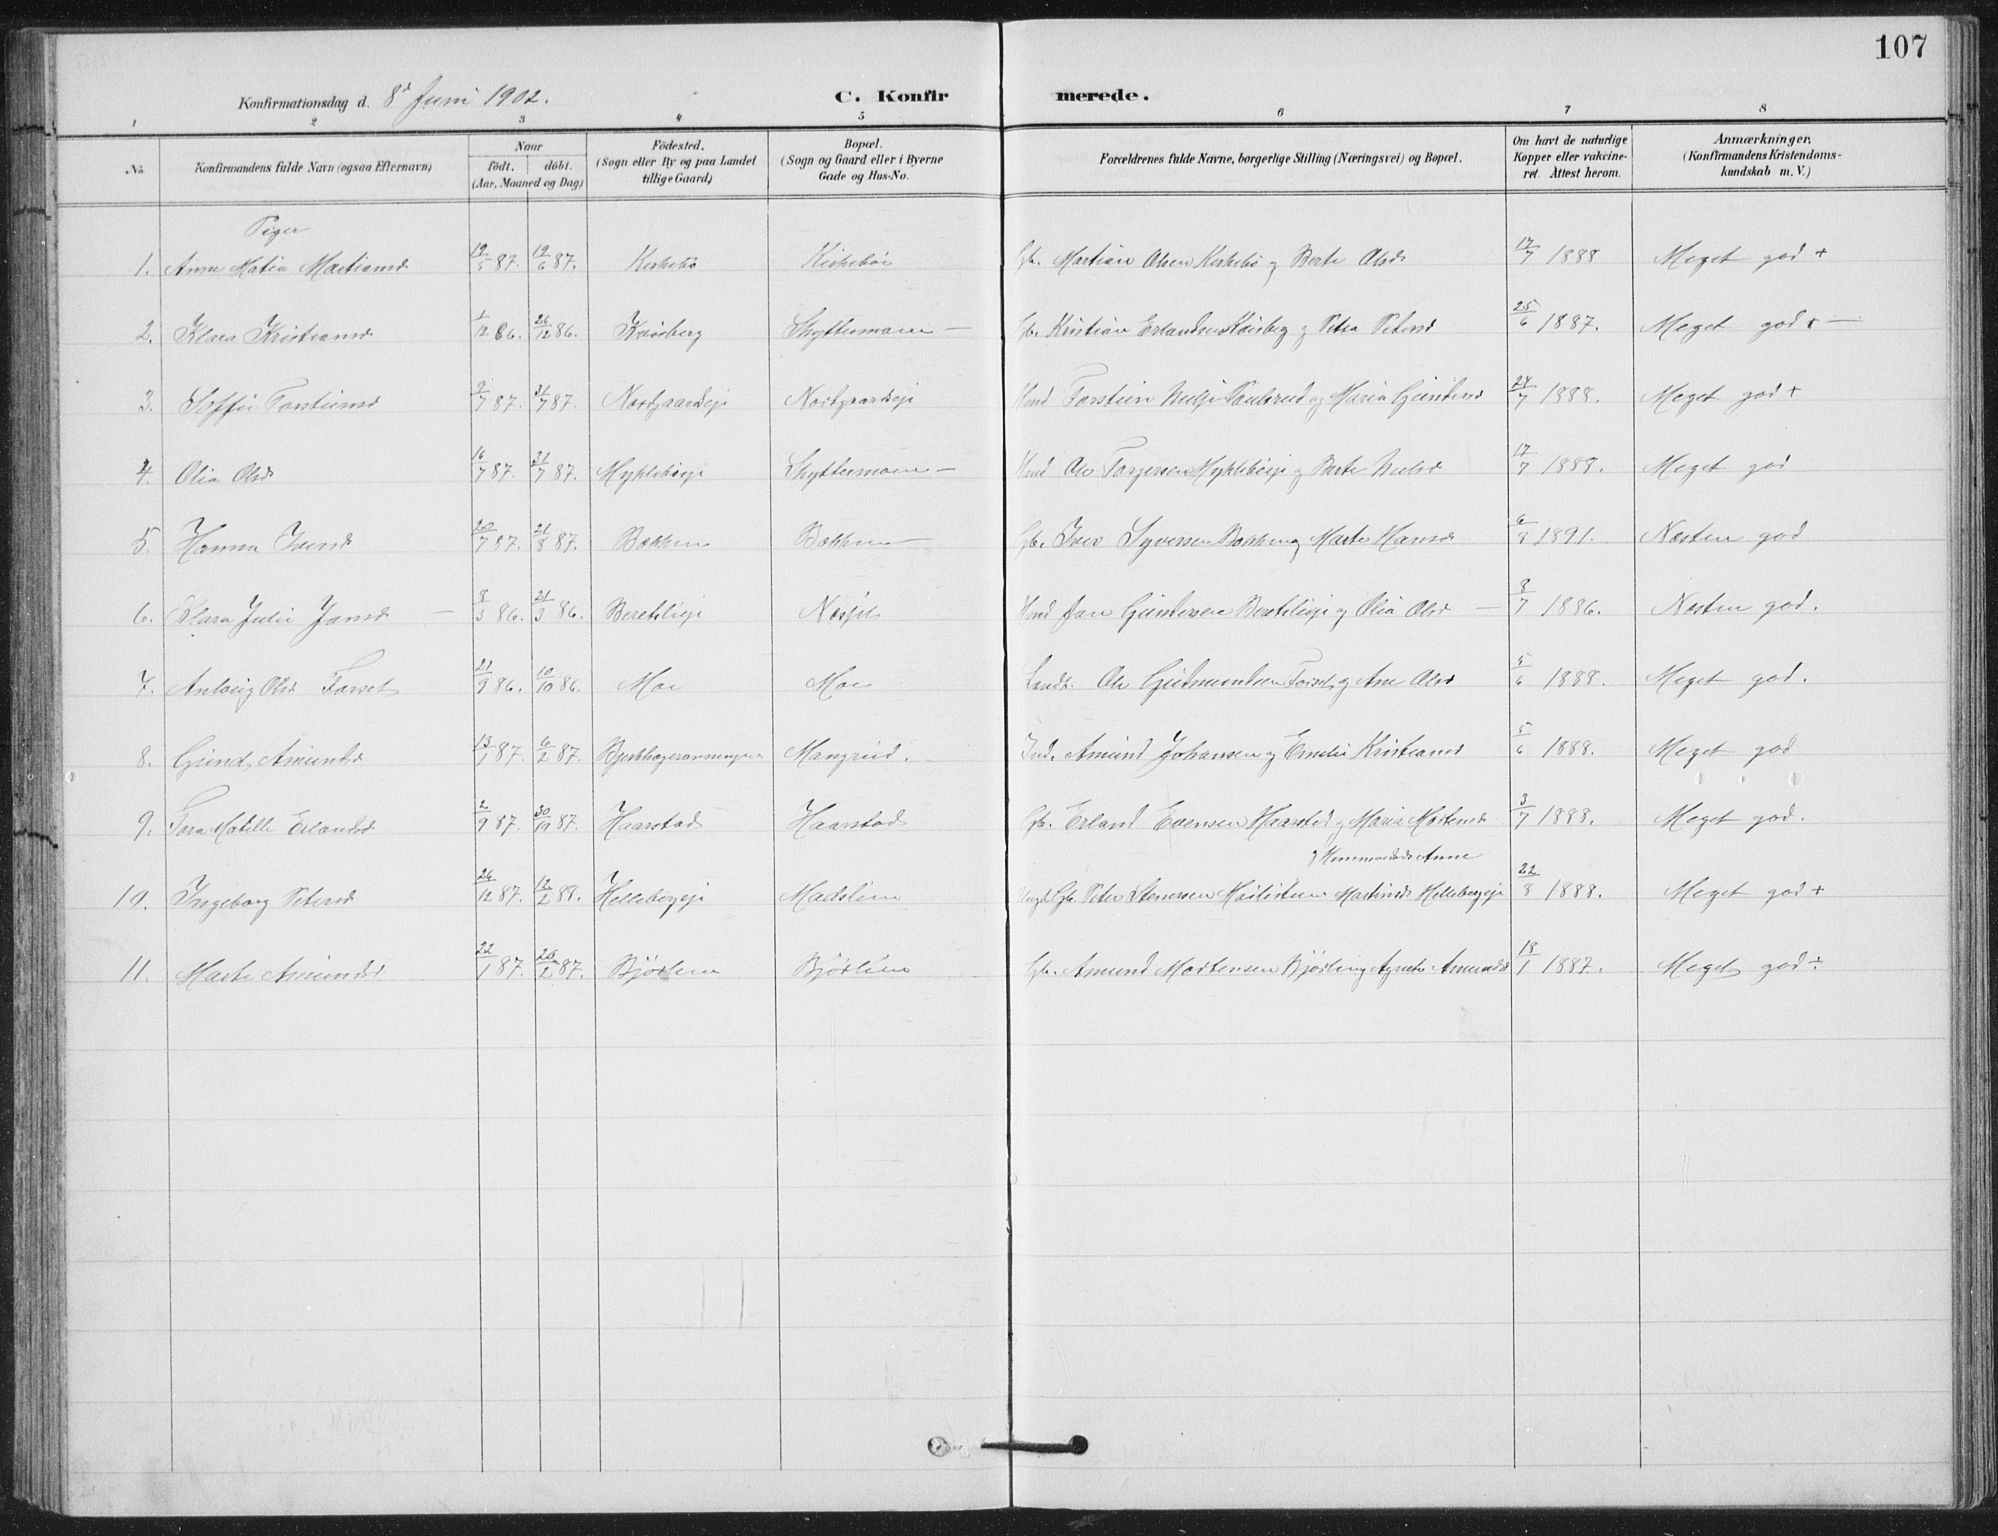 107
Konfirmationsdag d. 8d Juni 1902. C. Konfirmerede.
1 2 3 4 5 6 7 8
No. Konfirmandens fulde Navn (ogsaa Efternavn) Naar födt. döbt. (Aar, Maaned og Dag) Födested. (Sogn eller By og paa Landet tillige Gaard) Bopæl. (Sogn og Gaard eller i Byerne Gade og Hus-No. Forældrenes fulde Navne, borgerlige Stilling (Næringsvei) og Bopæl. Om havt de naturlige Kopper eller vakcineret. Attest herom. Anmærkninger, (Konfirmandens Kristendomskundskab m. V.)
Piger
1. Anne Matia Martiansd 19/5 87. 19/6 87. Kirkebö Kirkebö Gb. Martian Olsen Kirkebö og Berte Olsd 17/7 1888 Meget god +
2. Klara Kristiansd 1/12 86. 26/12 86. Skyttermoen — Gb. Kristian Erlandsen og Petra Petersd 25/6 1887. Meget god
3. Soffie Torsteinsd 9/7 87. 31/7 87. Nordgaardseje Nordgaardseje Torstein og Maria Gundersd 24/7 1888. Meget god +
4. Olia Olsd 16/7 87. 31/7 87. Mykleböeje Skyttermoen — Ole Torgersen Myklebøeje og Berte 17/7 1888. Meget god
5. Hanna Iversd 20/7 87. 21/8 87. Bakken Bakken — Gb. Iver Syversen Bakken og Marte Hansd 6/8 1891. Næsten god
6. Klara Julie Jansd — 8/3 86. 21/3 86. Beretslieje Jan Gundersen Beretslieje og Olia Olsd — 8/7 1886. Næsten god.
7. Olsd Forset 21/9 86. 10/10 86. Moe Moe Ole Gudmundsen Forset og Ane Olsd 5/6 1888. Meget god.
8. Gund. Amundsd 13/1 87. 6/2 87. Mangrud. Ind. Amund Johansen og Emilie Kristiansd 5/6 1888. Meget god
9. Tora Matille Erlandsd 2/9 87. 30/10 87. Haarstad Haarstad Gb. Erland Evensen Haarstad og Maria Mortensd 3/7 1888. Meget god.
Anne
10. Ingeborg Petersd 26/12 87. 12/2 88. Hellebergeje Madslien Peter Stenersen Martinsd Hellebergeje 22/8 1888. Meget god +
11. Marte Amundsd 22/1 87. 20/2 87. Björlien Björlien Gb. Amund Mortensen Björlien og Agnete Amundsd 18/1 1887. Meget god ÷